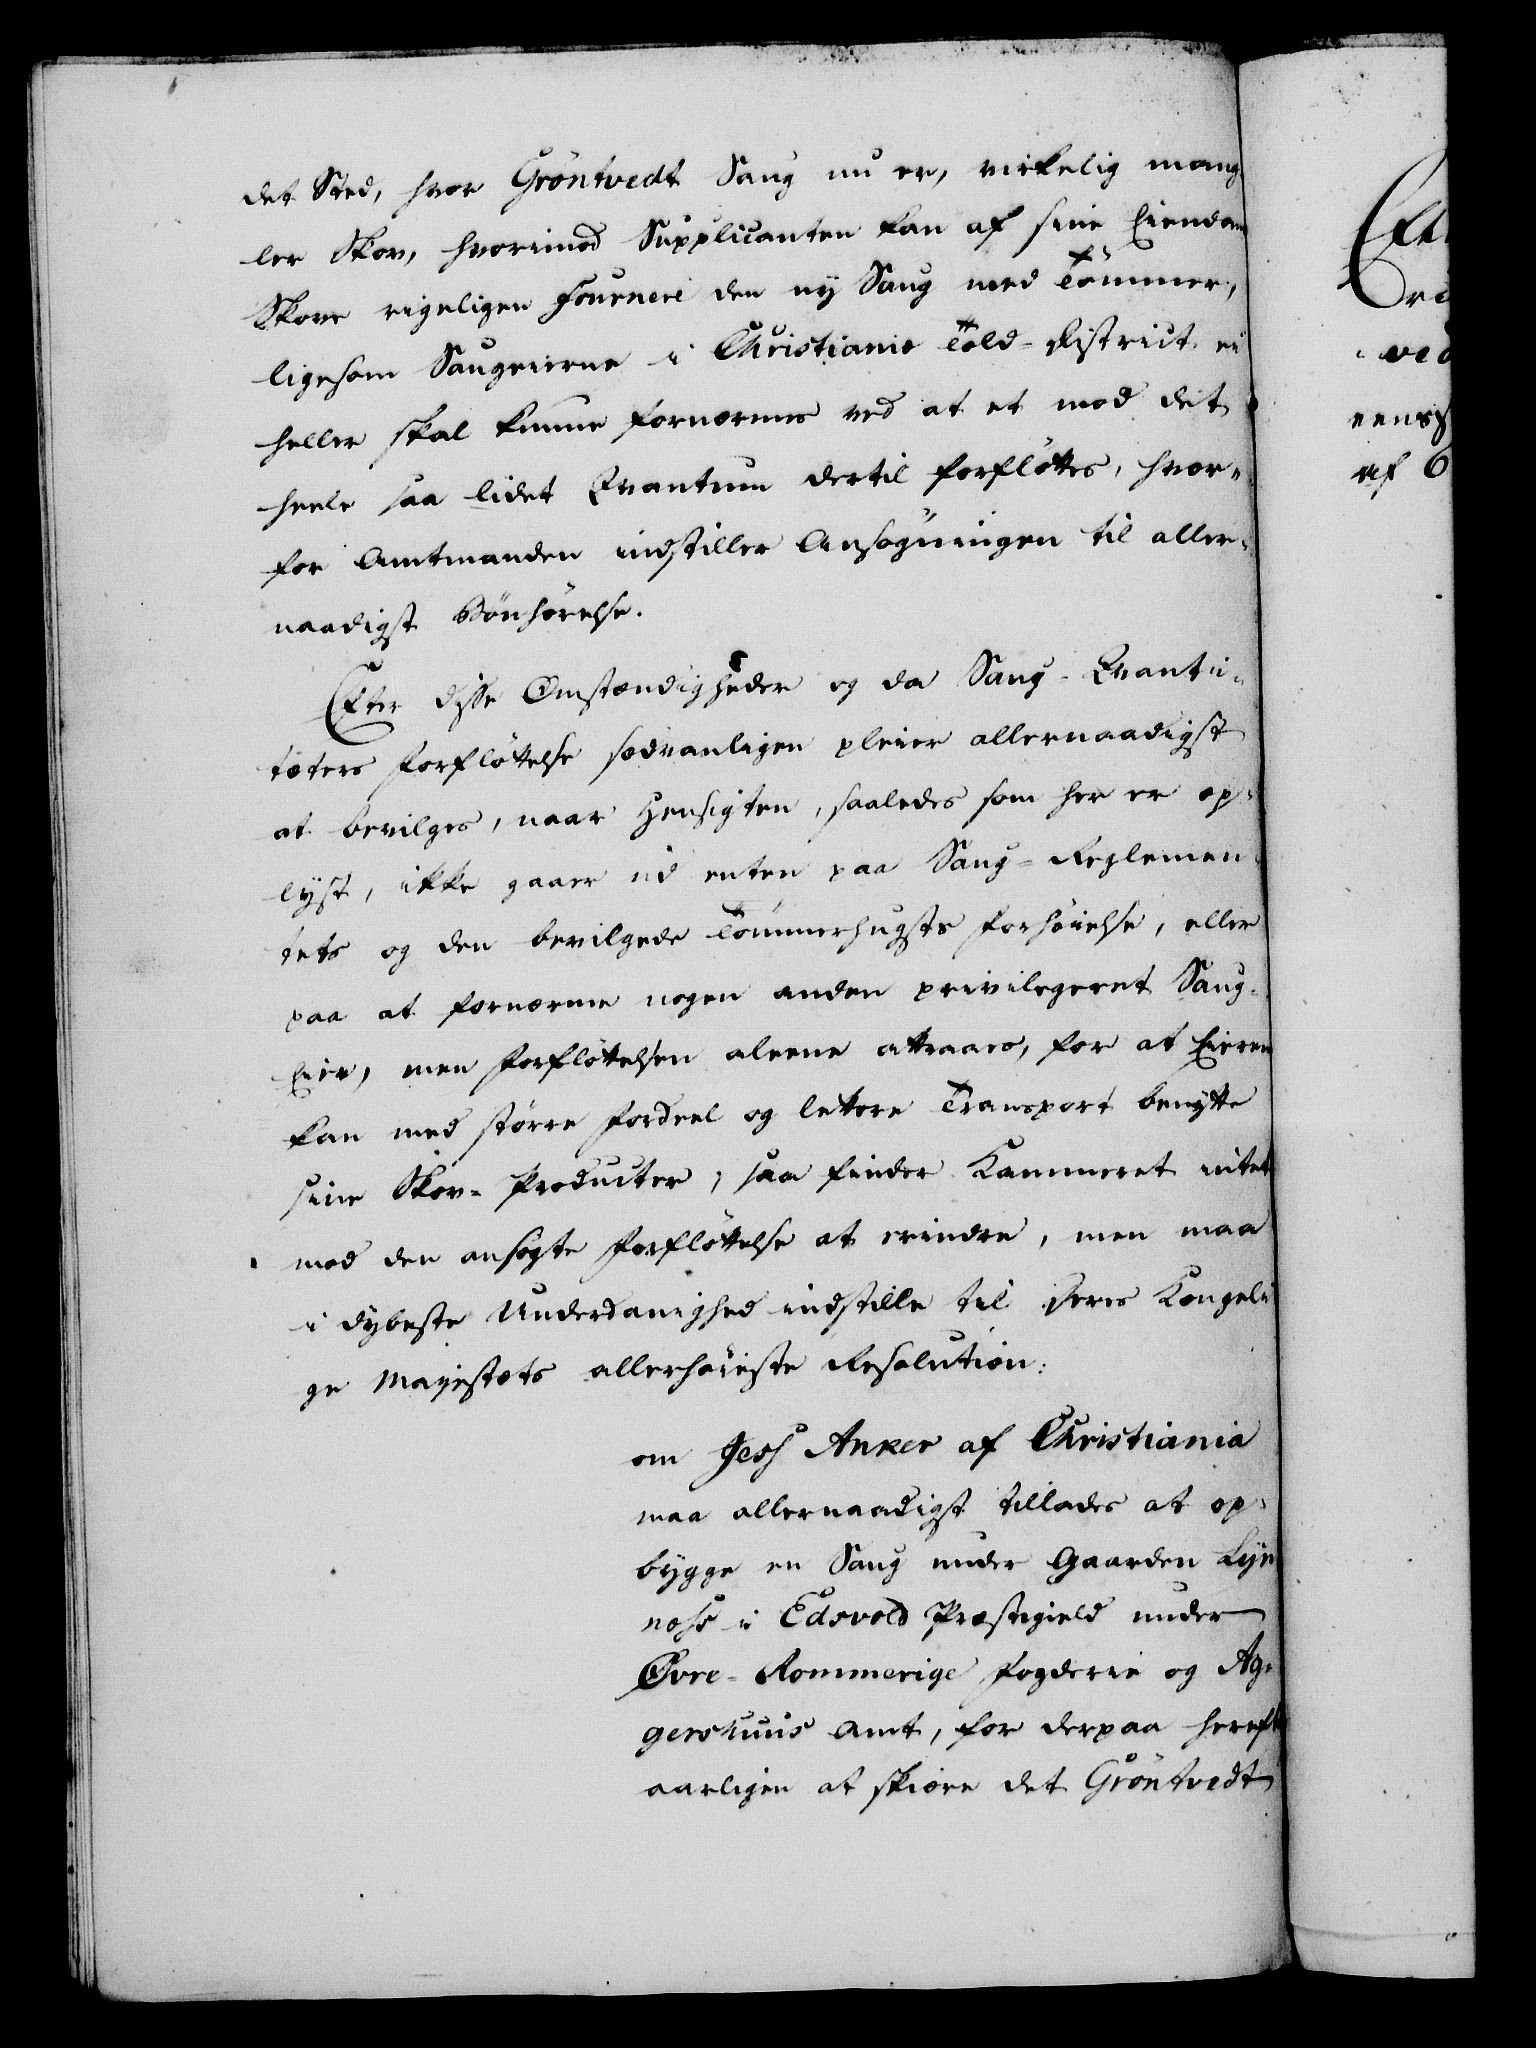 det Sted, hvor Gröntvedt Saug nu er, virkelig mang
ler Skov, hvorimod Supplicanten kan af sine Eiendom
Skove rigeligen Fournere den ny Saug med Tömmer,
ligesom Saugeierne i Christianiæ Told-District ei
heller skal kunne fornærmes ved at et mod det
heele saa lidet Qvantum dertil forflöttes, hvor-
for Amtmanden indstiller Ansögningen til aller-
naadigst Bönhörelse.
Efter disse Omstændigheder og da Saug-Qvanti-
tæters Forflöttelse sædvanligen pleier allernaadigst
at bevilges, naar Hensigten, saaledes som her er op-
lyst, ikke gaaer ud enten paa Saug-Reglemen
tets og den bevilgede Tömmerhugsts Forhöielse, eller
paa at fornærme nogen anden privilegeret Saug-
Eier, men Forflöttelsen aleene attraaes, for at Eieren
kan med större Fordeel og lettere Transport benytte
sine Skov-Producter; saa finder Kammeret intet
mod den ansögte Forflöttelse at erindre, men maa
i dybeste Underdanighed indstille til Deres Kongeli
ge Mayestæts allerhöieste Resolution:
om Jess Anker af Christiania
maa allernaadigst tillades at op-
bygge en Saug under Gaarden Lyn
næss i Edsvold Præstegield under
Øvre-Rommerige Fogderie og Ag-
gershuus Amt, for derpaa hereft
aarligen at skiære det Gröntvedt